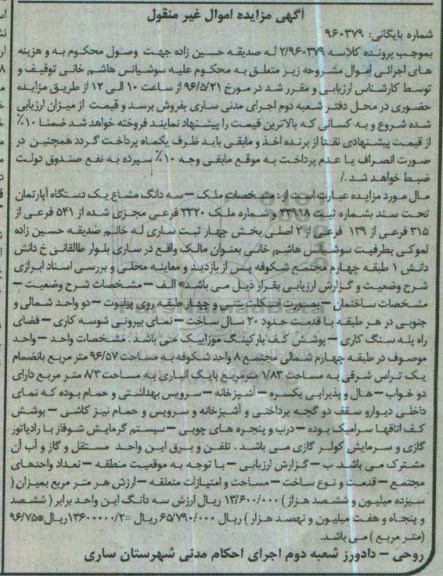 آگهی مزایده اموال غیر منقول
شماره بایگانی: ۹۶۰۳۷۹
بموجب پرونده کلاسه ۲/۹۶۰۳۷۹ له صدیقه حسین زاده جهت وصول محکوم به و هزینه
های اجرائی اموال مشروحه زیر متعلق به محکوم علیه سوشیانس هاشم خانی توقیف و
توسط کارشناس ارزیابی و مقرر شد در مورخ ۹۶/۵/۲۱ از ساعت ۱۰ الی ۱۲ از طریق مزایده
حضوری در محل دفتر شعبه دوم اجرای مدنی ساری بفروش برسد و قیمت از میزان ارزیابی
شده شروع و به کسانی که بالاترین قیمت را پیشنهاد نمایند فروخته خواهد شد ضمنا ۱۰٪
از قیمت پیشنهادی نقدا از برنده اخذ و مابقی باید ظرف یکماه پرداخت گردد همچنین در
صورت انصراف یا عدم پرداخت به موقع مابقی وجه ۱۰٪ سپرده به نفع صندوق دولت
ضبط خواهد شد./
مال مورد مزایده عبارت است از: مشخصات ملک – سه دانگ مشاع یک دستگاه آپارتمان
تحت سند بشماره ثبت ۱۳۹۱۸ و شماره ملک ۳۳۲۰ فرعی مجزی شده از ۵۴۱ فرعی از
۳۱۵ فرعی از ۱۳۹ فرعی از ۲ اصلی بخش چهار ثبت ساری له خانم صدیقه حسین زاده
لموکی بطرفیت سوشیانس هاشم خانی بعنوان مالک واقع در ساری بلوار طالقانی خ دانش
دانش ۱ طبقه چهارم مجتمع شکوفه پس از بازدید و معاینه محلی و بررسی اسناد ابرازی
شرح وضعیت و گزارش ارزیابی بقرار ذیل می باشد» الف – مشخصات شرح وضعیت –
مشخصات ساختمان – بصورت اسکلت بتنی و چهار طبقه روی پیلوت – دو واحد شمالی و
جنوبی در هر طبقه با قدمت حدود ۲۰ سال ساخت – نمای بیرونی شوسه کاری – فضای
راه پله سنگ کاری – پوشش کف پارکینگ موزاییک می باشد. مشخصات واحد – واحد
موصوف در طبقه چهارم شمالی مجتمع ۸ واحد شکوفه به مساحت ۹۶/۵۷ متر مربع بانضمام
یک تراس شرقی به مساحت ۱/۸۳ مترمربع با یک انباری به مساحت ۸/۳ متر مربع دارای
دو خواب – هال و پذیرایی یکسره – آشپزخانه – سرویس بهداشتی و حمام بوده که نمای
داخلی دیوار و سقف دو گچه پرداختی و آشپزخانه و سرویس و حمام نیز کاشی – پوشش
کف اتاقها سرامیک بوده – درب و پنجره های چوبی – سیستم گرمایش شوفاژ با رادیاتور
گازی و سرمایش کولر گازی می باشد. تلفن و برق این واحد مستقل و گاز و آب آن
مشترک می باشد. ب – گزارش ارزیابی – با توجه به موقعیت منطقه – تعداد واحدهای
مجتمع – قدمت و نوع ساخت – مساحت و امتیازات متعلقه – ارزش هر متر مربع بمیزان (
سیزده میلیون و ششصد هزار) ۱۳/۶۰۰/۰۰۰ ریال ارزش سه دانگ این واحد برابر ( ششصد
و پنجاه و هفت میلیون و نهصد هزار ) ریال ۶۵/۷۹۰/۰۰۰ ریال = ۱۳۶۰۰۰۰۰/۲ریال*۹۶/۷۵
(متر مربع ) می باشد.
روحی – دادورز شعبه دوم اجرای احکام مدنی شهرستان ساری